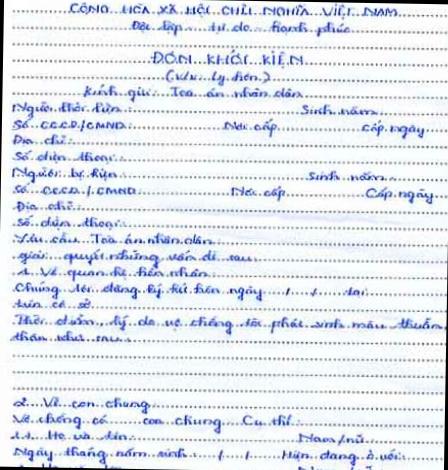 CỘNG HÒA XÃ HỘI CHỦ NGHĨA VIỆT NAM
Độc lập tự do hạnh phúc
ĐƠN KHỞI KIỆN
(V/v: Ly hôn)
Kính gửi: Tòa án nhân dân
Người khởi kiện: Sinh năm:
Số CCCD/CMND: Nơi cấp Cấp ngày
Địa chỉ:
Số điện thoại:
Người bị kiện Sinh năm:
Số CCCD/CMND: Nơi cấp Cấp ngày
Địa chỉ:
Số điện thoại:
Yêu cầu Tòa án nhân dân
giải quyết những vấn đề sau:
1. Về quan hệ hôn nhân
Chúng tôi đăng ký kết hôn ngày / / tại
trên cơ sở
Thời điểm, lý do vợ chồng tôi phát sinh mâu thuẫn
thân như sau:
2. Về con chung
Vợ chồng có con chung Cụ thể:
1.1 Họ và tên: Nam/nữ:
Ngày tháng năm sinh / / Hiện đang ở với: